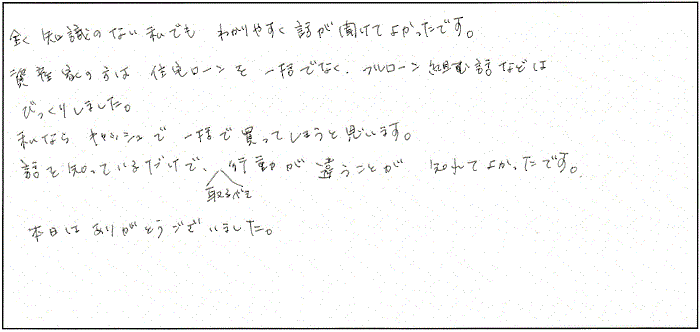 全く知識のない私でも わかりやすく話が聞けてよかったです。
資産家の方は 住宅ローンを 一括でなく、フルローン組む話などは
びっくりしました。
私なら キャッシュで 一括で買ってしまうと思います。
話を知っているだけで、行動が 違うことが 知れてよかったです。
取るべき
本日は ありがとうございました。